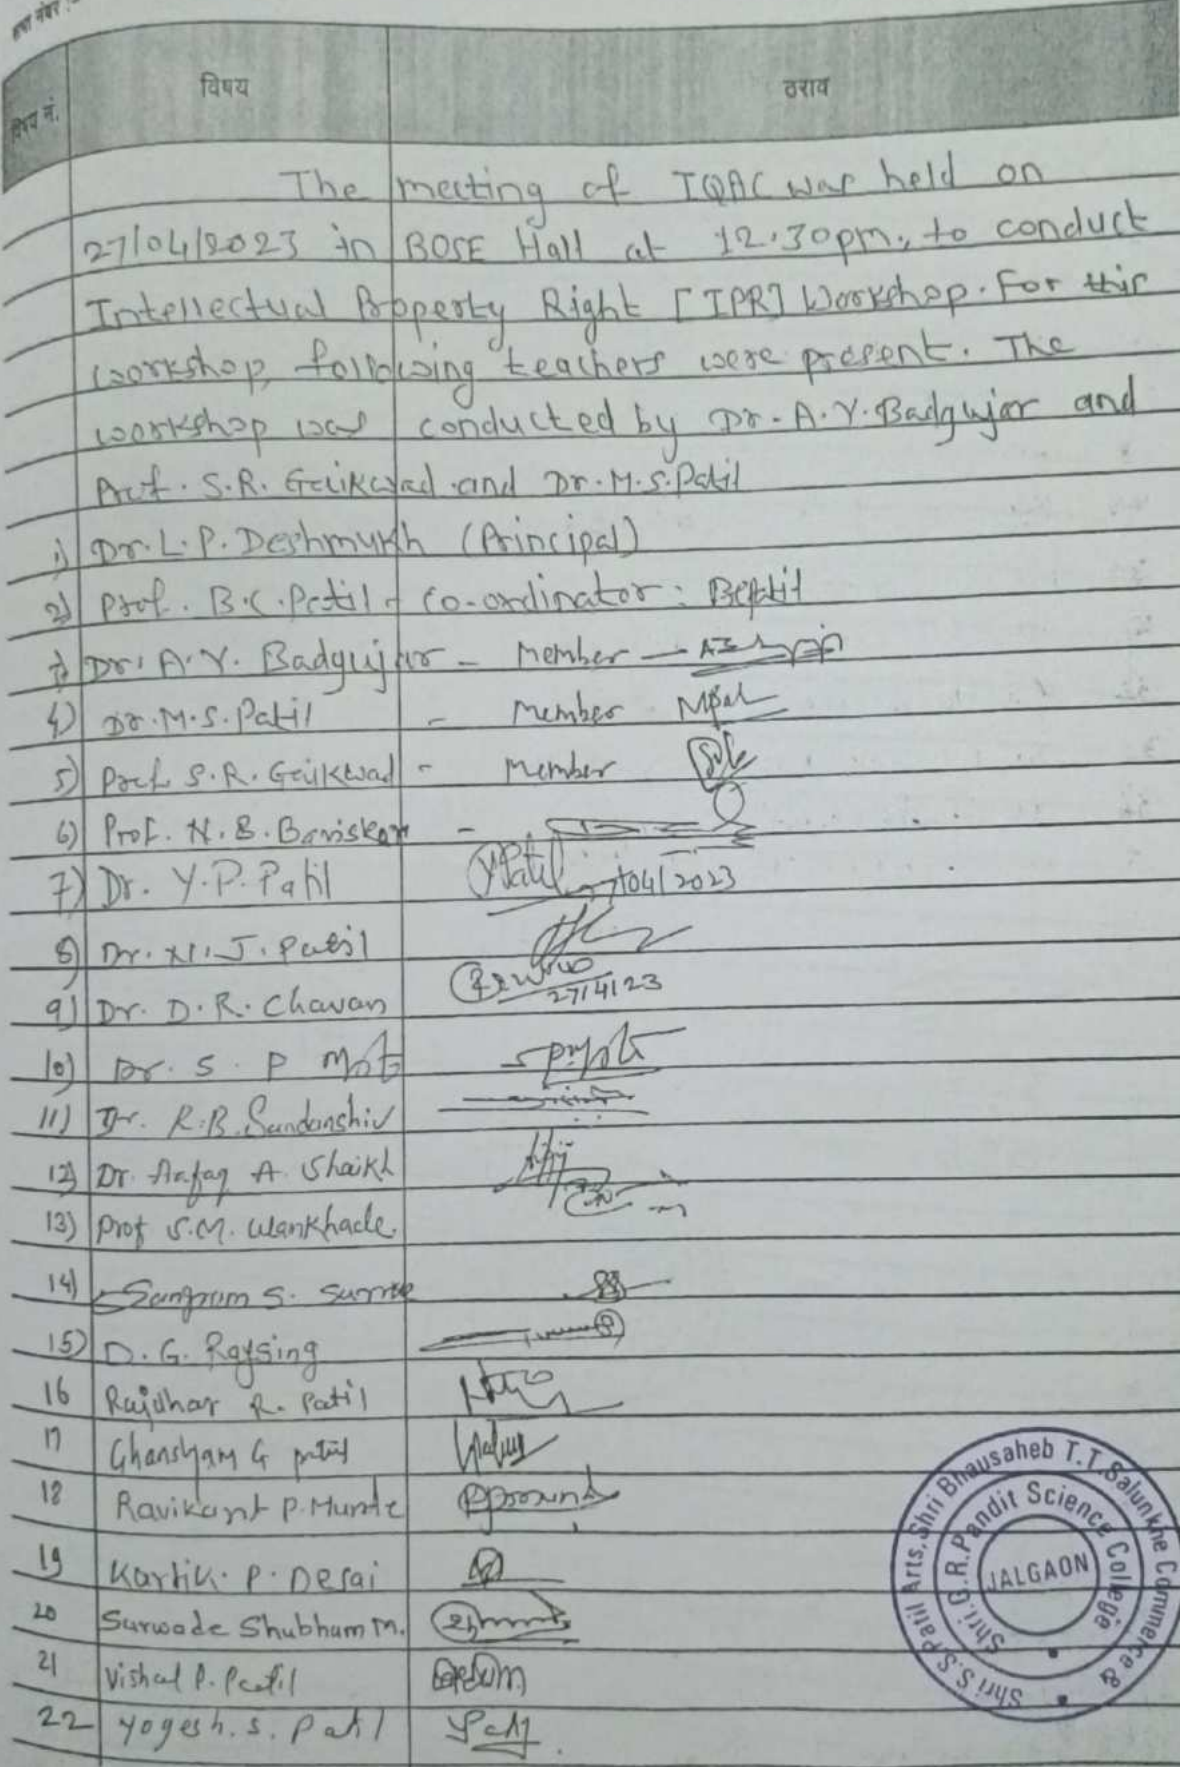 विषय नं.
विषय
ठराव
The meeting of IQAC was held on
27/04/2023 in BOSE Hall at 12.30pm, to conduct
Intellectual Property Right [IPR] Workshop. For this
workshop, following teachers were present. The
workshop was conducted by Dr. A.Y. Badgujar and
Prof. S.R. Gaikwad and Dr. M.S. Patil
1) Dr. L.P. Deshmukh (Principal)
2) Prof. B.C. Patil - Co-ordinator: BCPatil
3) Dr. A.Y. Badgujar - Member -
4) Dr. M.S. Patil - Member
5) Prof. S.R. Gaikwad - Member
6) Prof. N.B. Baviskar -
7) Dr. Y.P. Patil YPatil /04/2023
8) Dr. N.J. Patil
9) Dr. D.R. Chavan 27/4/23
10) Dr. S. P
11) Dr. R.B. Sandanshiv
12) Dr. Aafaq A. Shaikh
13) Prof S.M. Wankhade.
14) Sangram S.
15) D. G. Raysing
16 Rajdhar R. Patil
17 Ghansham G patil
18 Ravikant P. Munde
19 Kartik. P. Desai
20 Surwade Shubham M.
21 Vishal P. Patil
22 Yogesh. S. Patil
Shri S.S. Patil Arts, Shri Bhausaheb T.T. Salunkhe Commerce &
Shri. G.R. Pandit Science College
JALGAON